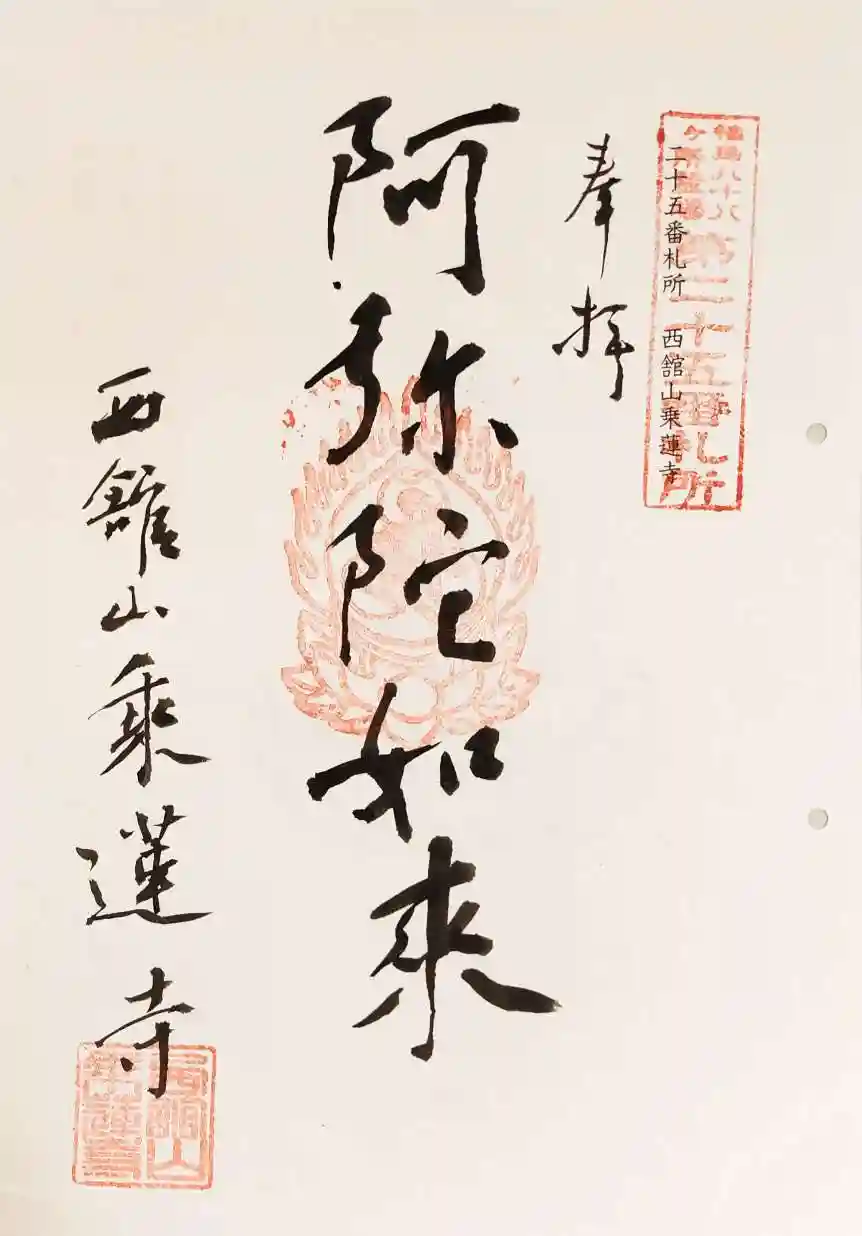 福島八十八
ケ所霊場
第二十五番札所
二十五番札所 西舘山乗蓮寺
奉拝
阿弥陀如来
西舘山乗蓮寺
西舘山
乗蓮寺